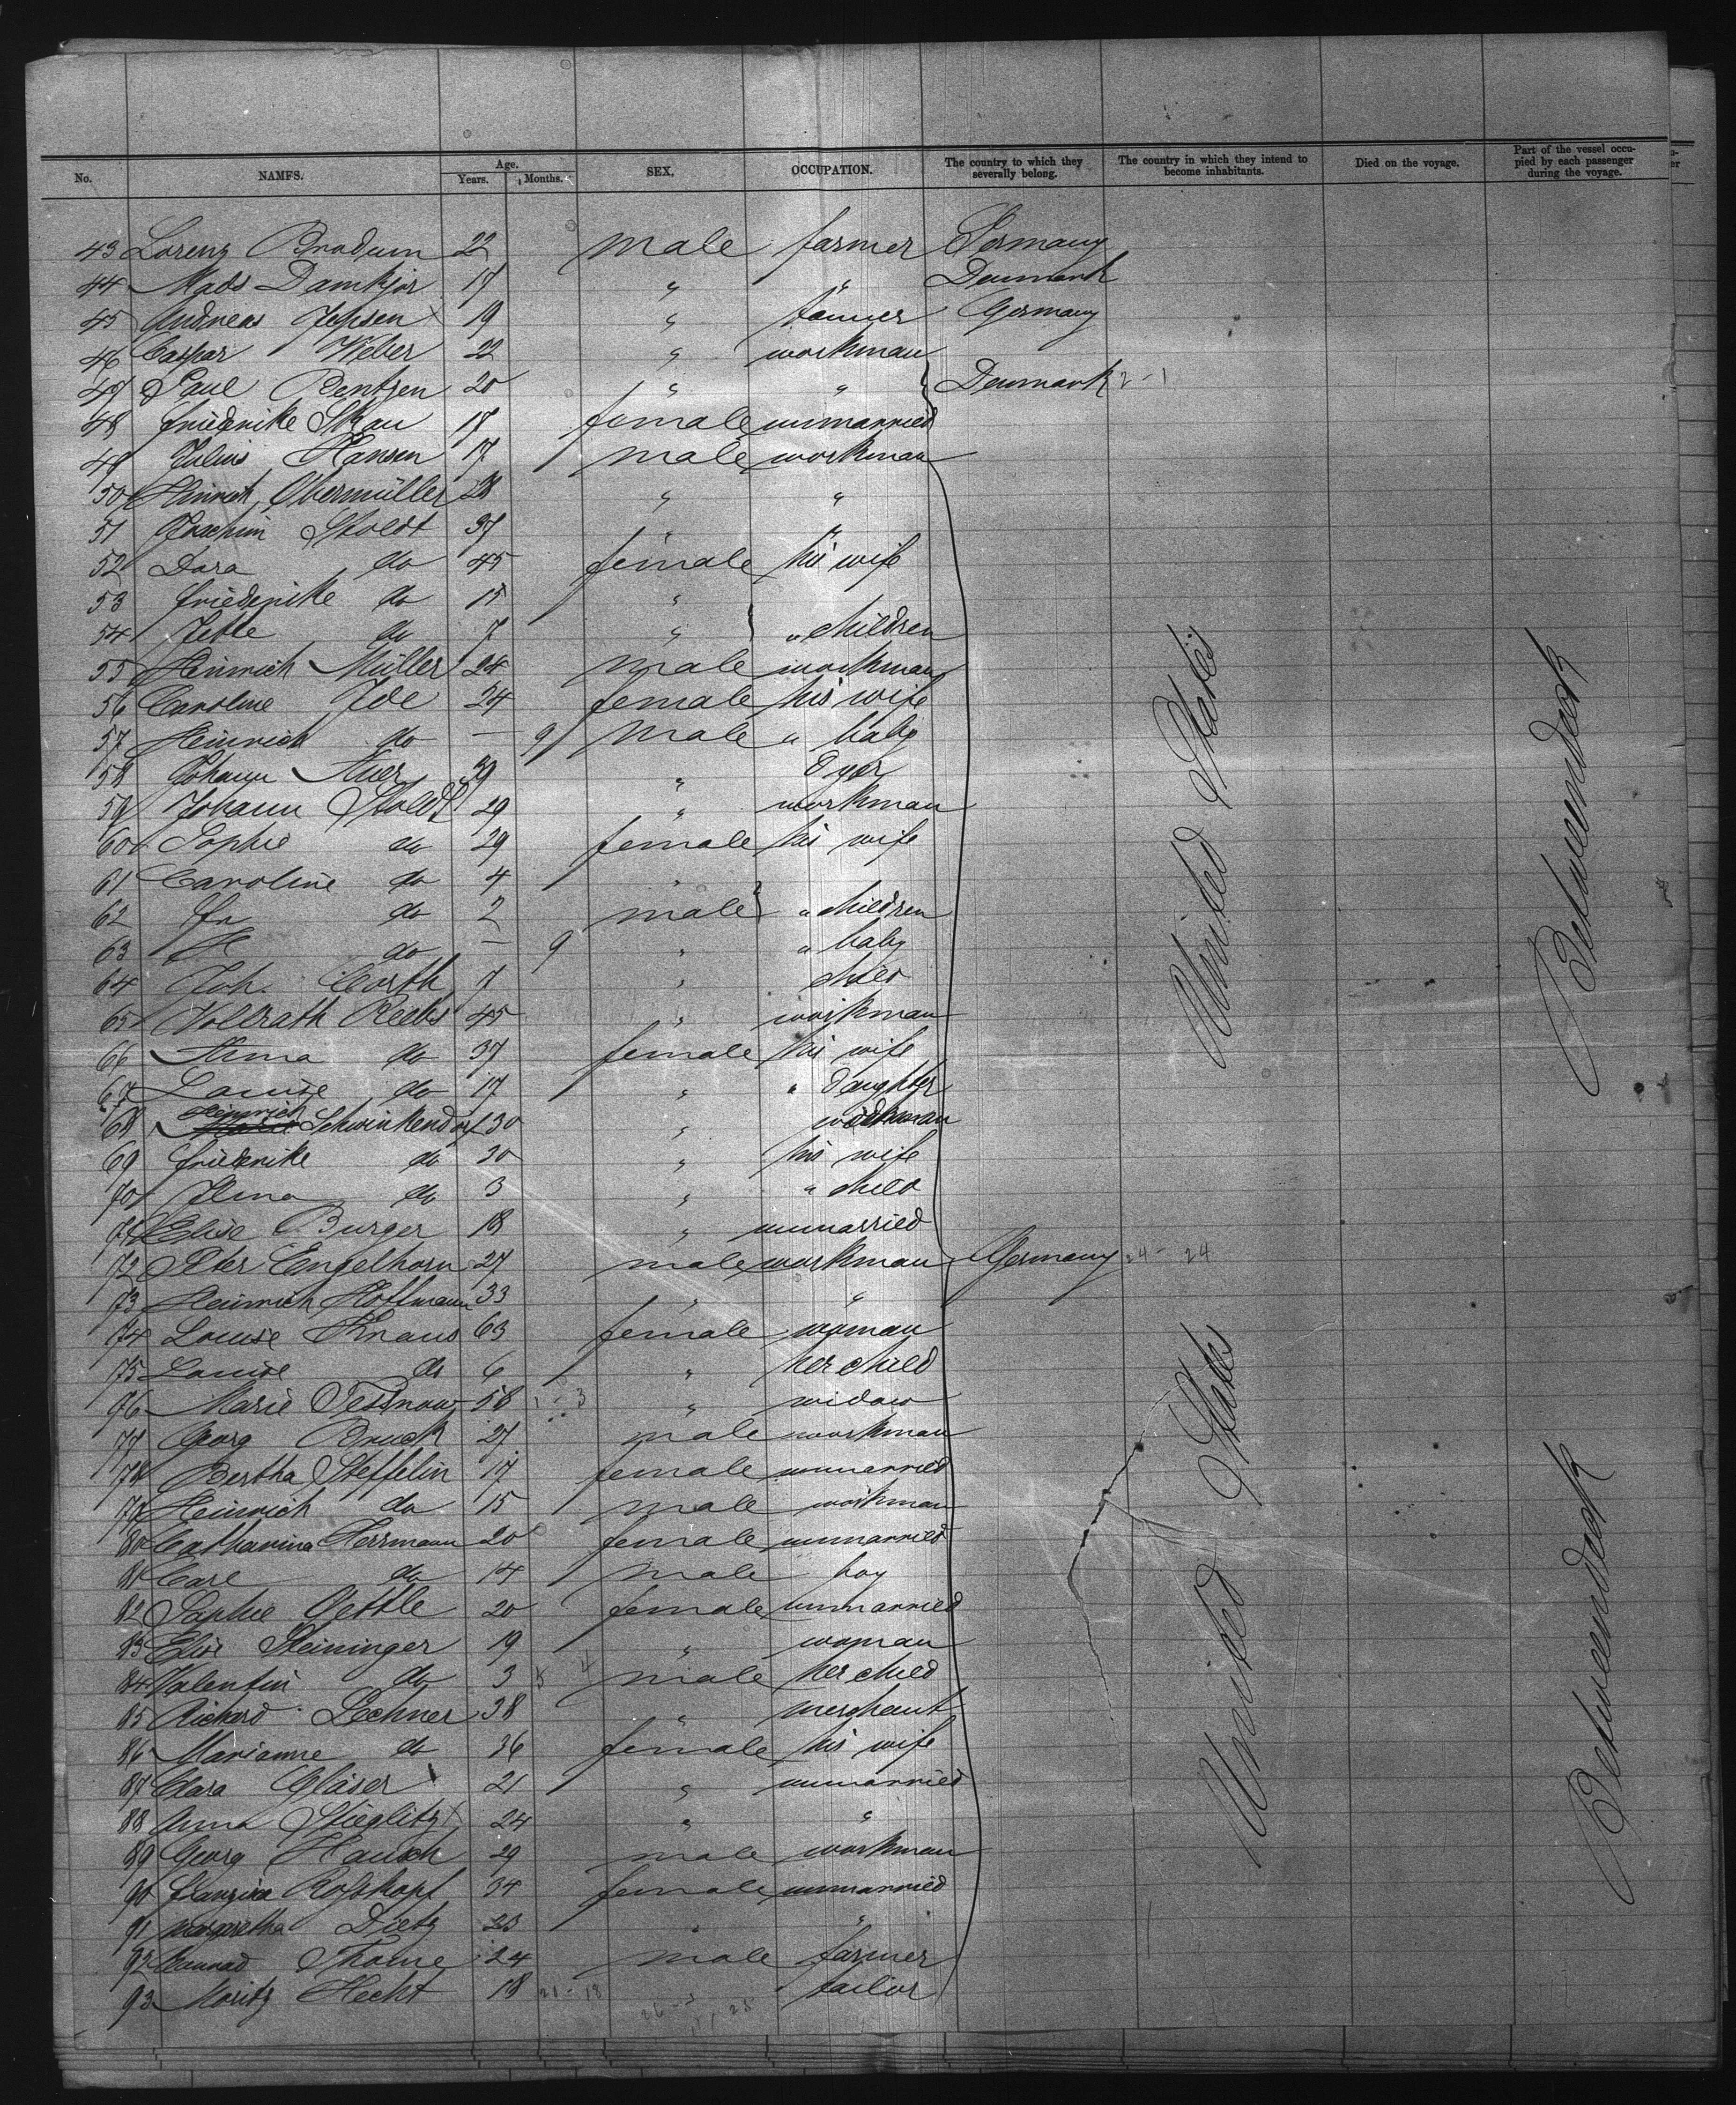 No. NAMES. Age. Years. Months. SEX. OCCUPATION. The country to which they severally belong. The country in which they intend to become inhabitants. Died on the voyage. Part of the vessel occupied by each passenger during the voyage.
43 Lorenz Brodum 22 male farmer Germany
44 Mads Damkjar 17 " " Denmark
45 Andreas Jepsen 19 " tanner Germany
46 Caspar Weber 22 " workman
47 Paul Bentzen 20 " " Denmark 2-1
48 Friederike Skau 17 female unmarried
49 Julius Hansen 17 male workman
50 Heinrich Obermüller 28 " "
51 Joachim Stoldt 37 " "
52 Dora do 45 female his wife
53 Friederike do 15 "
54 Jette do 7 " " children
55 Heinrich Müller 24 male workman
56 Caroline Ide 24 female his wife
57 Heinrich do — 9 male " baby
58 Johann Auer 39 " dyer
59 Johann Stoldt 29 " workman
60 Sophie do 29 female his wife
61 Caroline do 4 "
62 do 2 male " children
63 H do — 9 " " baby
64 Joh. Corth 7 " child
65 Vollrath Reebs 45 " workman
66 Anna do 37 female his wife
67 Louise do 17 " " daughter
68 Heinrich Schwinkendorf 30 " workman
69 Friederike do 30 " his wife
70 Alma do 3 " " child
71 Elise Burger 18 " unmarried
72 Peter Engelhorn 27 male workman Germany 24-24
73 Heinrich Hoffmann 33 " "
74 Louise Knaus 63 female woman
75 Louise do 6 " her child
76 Marie Tessnow 58 " widow
77 Georg Bruck 27 male workman
78 Bertha Steffelin 17 female unmarried
79 Heinrich do 15 male workman
80 Catharina Herrmann 20 female unmarried
81 Carl do 14 male boy
82 Sophie Oettle 20 female unmarried
83 Elise Steininger 19 " woman
84 Valentin do 3 male her child
85 Richard Lechner 38 " merchant
86 Marianne do 36 female his wife
87 Clara Gläser 21 " unmarried
88 Anna Stieglitz 24 " "
89 Georg Hauch 29 male workman
90 Franziska Roßkopf 34 female unmarried
91 Margaretha Dietz 23 " "
92 Conrad Thome 24 male farmer
93 Moritz Hecht 18 " tailor
United States
Betweendeck
United States
Betweendeck